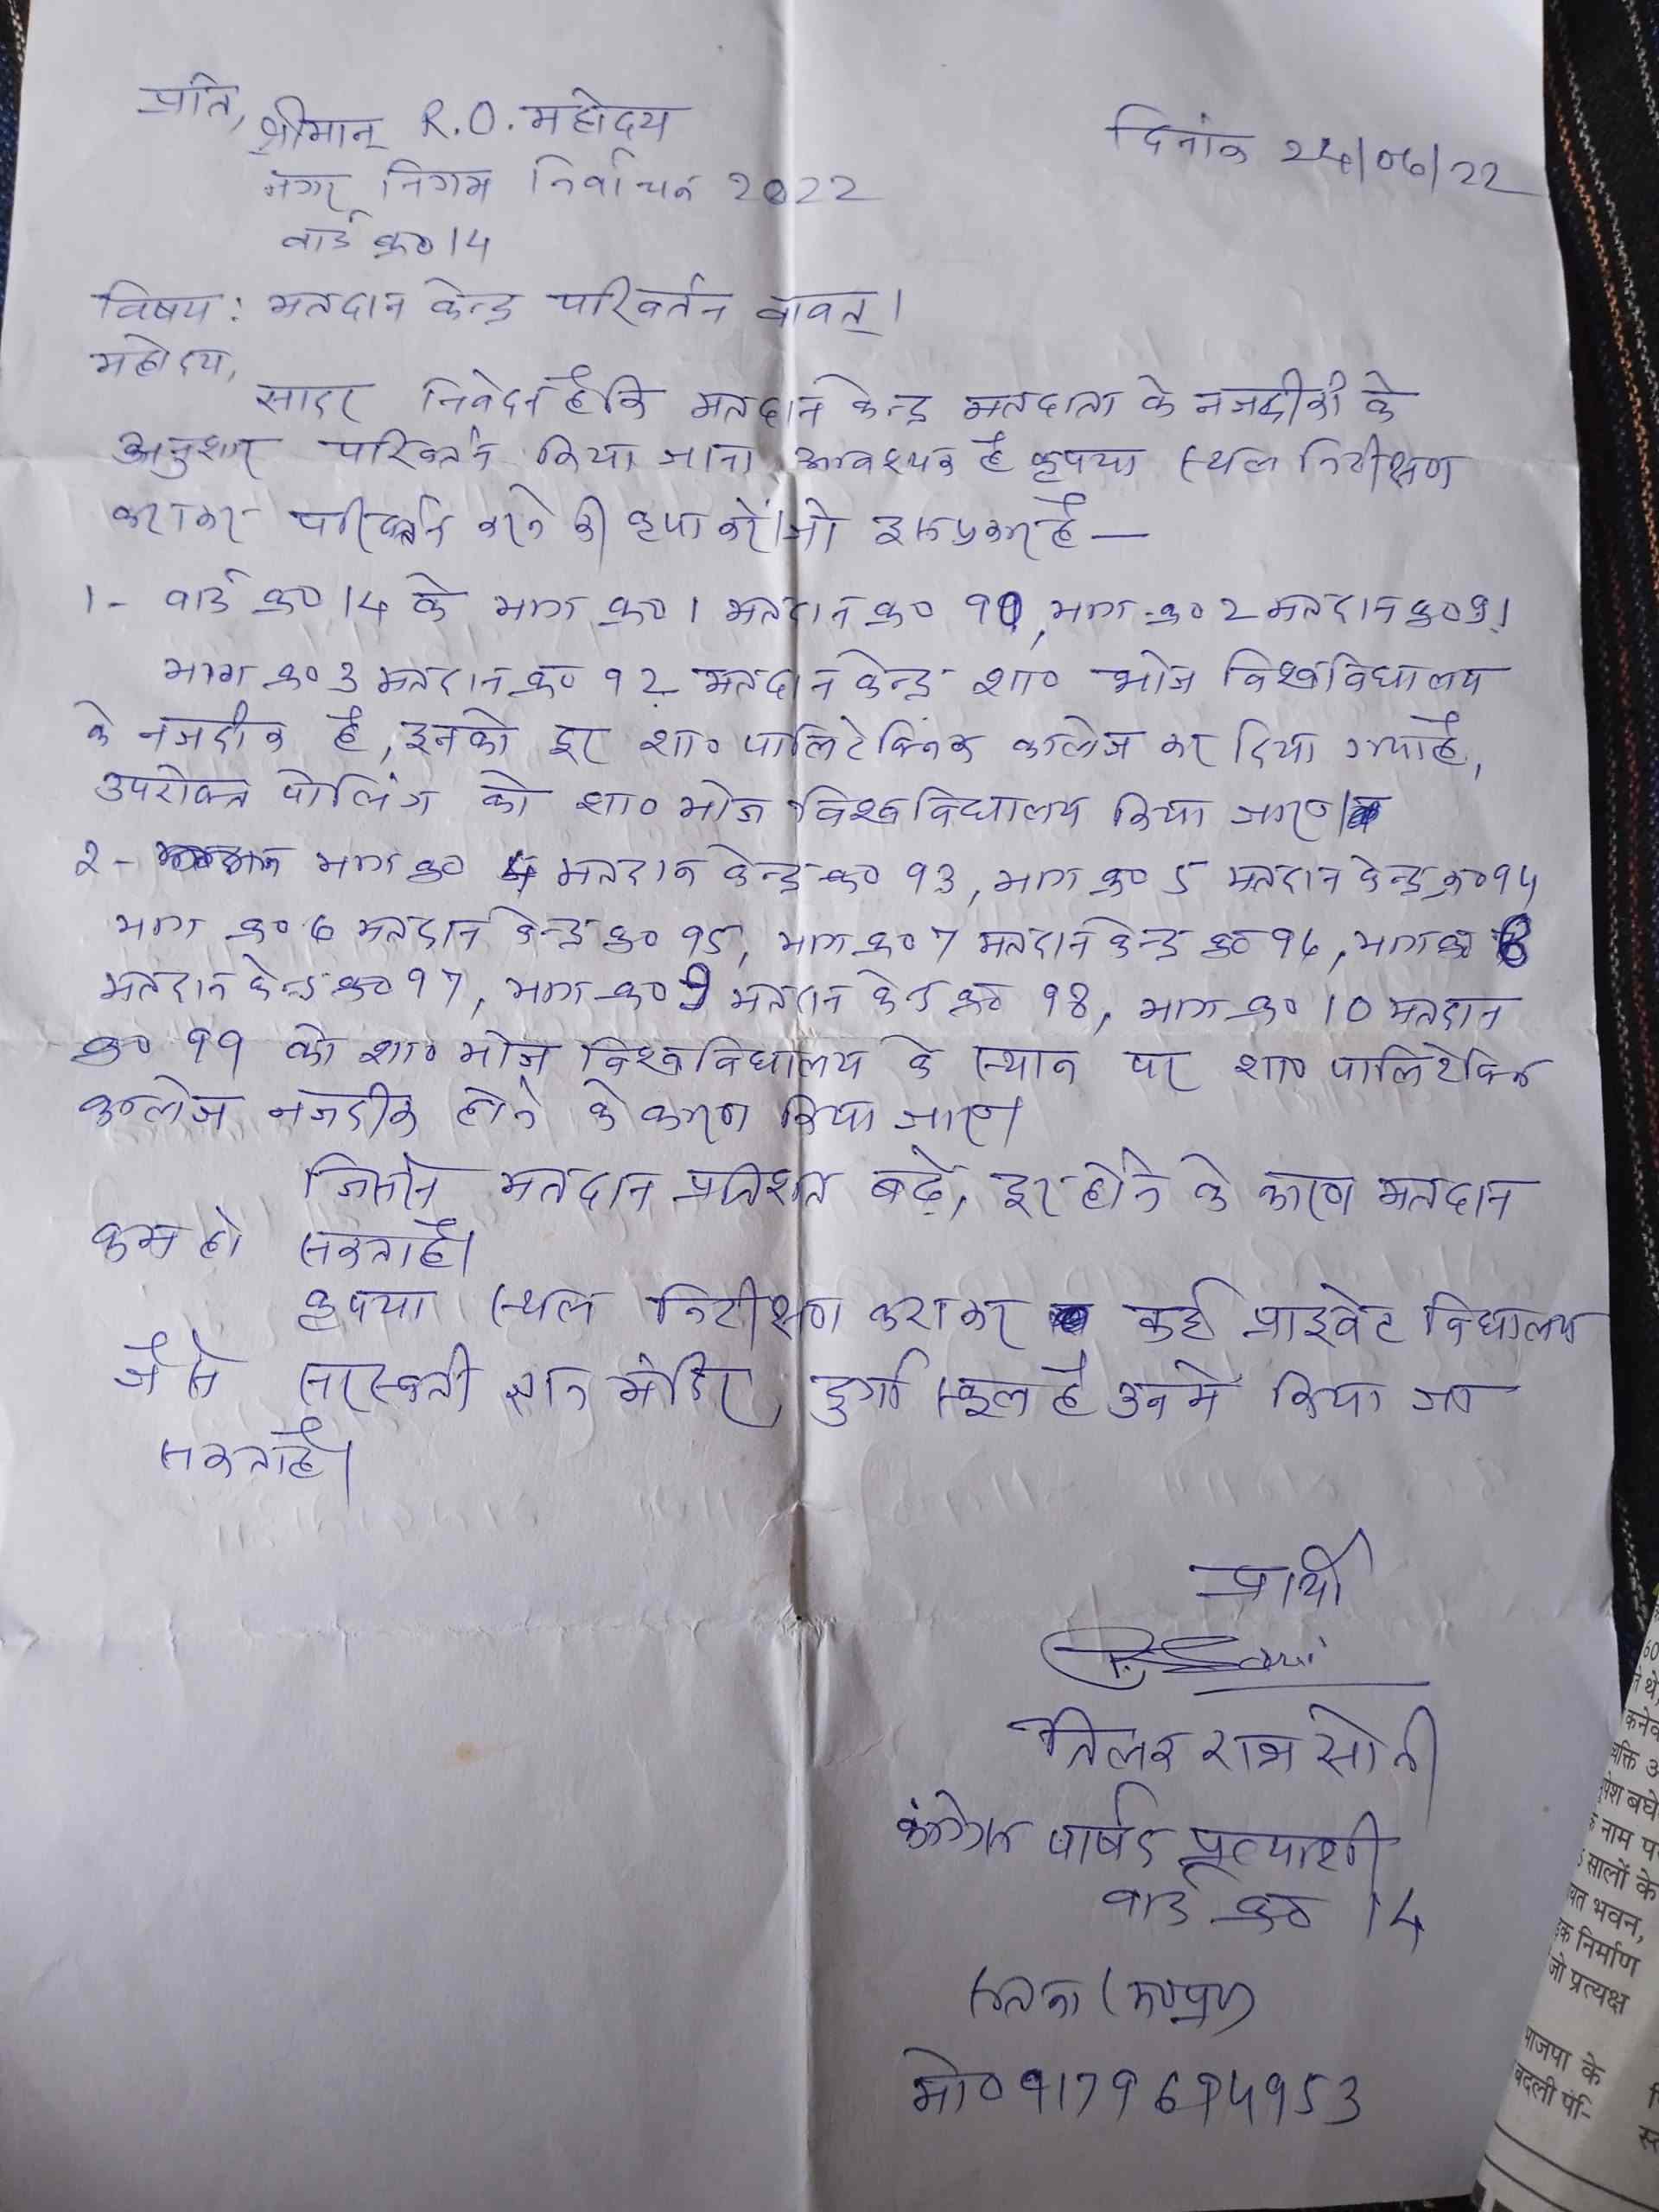 प्रति,
श्रीमान् R.O. महोदय
दिनांक 24/06/22
नगर निगम निर्वाचन 2022
वार्ड क्र० 14
विषय: मतदान केन्द्र परिवर्तन वावत्।
महोदय,
सादर निवेदन है कि मतदान केन्द्र मतदाता के नजदीकी के
अनुशार परिवर्तन किया जाना आवश्यक है कृपया स्थल निरीक्षण
कराकर परिवर्तन करने की कृपा करें। जो इस प्रकार है —
1- वार्ड क्र० 14 के भाग क्र० 1 मतदान क्र० 90, भाग क्र० 2 मतदान क्र० 91
भाग क्र० 3 मतदान क्र० 92 मतदान केन्द्र शा० भोज विश्वविद्यालय
के नजदीक है, इनको दूर शा० पालिटेक्निक कालेज कर दिया गया है,
उपरोक्त पोलिंग को शा० भोज विश्वविद्यालय किया जाए।
2- भाग क्र० 4 मतदान केन्द्र क्र० 93, भाग क्र० 5 मतदान केन्द्र क्र० 94
भाग क्र० 6 मतदान केन्द्र क्र० 95, भाग क्र० 7 मतदान केन्द्र क्र० 96, भाग क्र० 8
मतदान केन्द्र क्र० 97, भाग क्र० 9 मतदान केन्द्र क्र० 98, भाग क्र० 10 मतदान
क्र० 99 को शा० भोज विश्वविद्यालय के स्थान पर शा० पालिटेक्निक
कालेज नजदीक होने के कारण किया जाए।
जिससे मतदान प्रतिशत बढ़े, दूर होने के कारण मतदान
कम हो सकता है।
कृपया स्थल निरीक्षण कराकर कई प्राइवेट विद्यालय
जैसे सरस्वती ज्ञान मंदिर, दुर्गा स्कूल है उनमे किया जा
सकता है।
प्रार्थी
तिलक राज सोनी
कांग्रेस पार्षद प्रत्याशी
वार्ड क्र० 14
सतना (म०प्र०)
मो० 9179694953
नाम पर
सालों के
यत भवन,
निर्माण
जो प्रत्यक्ष
भाजपा के
बदली पं-